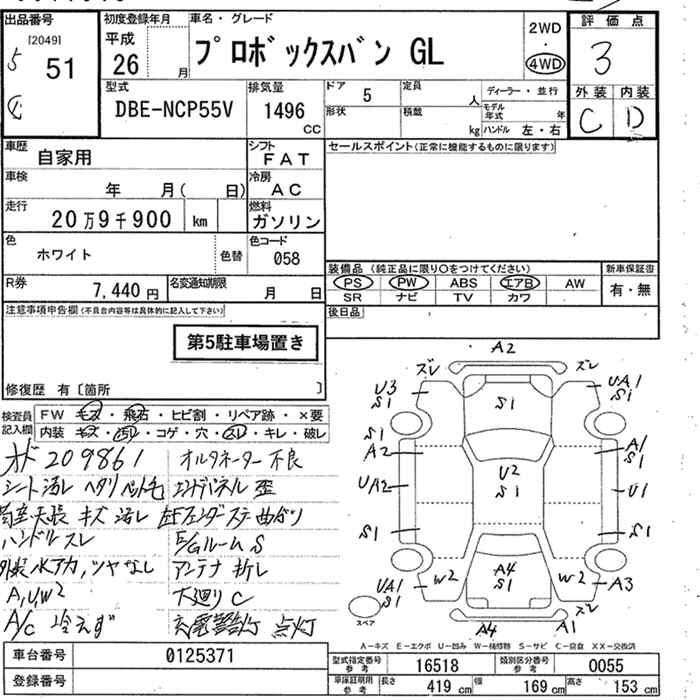 出品番号
[2049]
51
初度登録年月
平成
26 月
車名・グレード
プロボックスバン GL
2WD
4WD
評価点
3
外装 内装
C D
型式
DBE-NCP55V
排気量
1496
CC
ドア
5
定員
人
ディーラー・並行
形状
積載
kg
モデル年式 年
ハンドル 左・右
車歴
自家用
シフト
FAT
セールスポイント(正常に機能するものに限ります)
車検
年 月( 日)
冷房
AC
走行
20万9千900 km
燃料
ガソリン
色
ホワイト
色替
色コード
058
R券
7,440円
名変通知期限
月 日
装備品 (純正品に限り○をつけてください)
新車保証書
PS PW ABS エアB AW
SR ナビ TV カワ
有・無
後日品
注意事項申告欄(不具合内容等は具体的に記入して下さい)
第5駐車場置き
修復歴 有〔箇所 〕
検査員記入欄
FW キズ・飛石・ヒビ割・リペア跡・×要
内装 キズ・汚レ・コゲ・穴・スレ・キレ・破レ
オド 209861
オルタネーター 不良
シート汚レ ヘタリ ペット毛
エンドパネル 歪
荷室天張 キズ 汚レ
左Fフェンダーステー曲がり
ハンドルスレ
E/Gルーム S
外装 水アカ,ツヤなし
アンテナ 折レ
A,U,W2
下廻り C
A/C 冷えず
充電警告灯 点灯
A2
ズレ
ズレ
U3
S1
UA1
S1
S1
S1
A2
A1
S1
UA2
U2
S1
U1
S1
S1
W2
A4
S1
W2
A3
UA1
S1
ズレ
A4
A1
スペア
A-キズ E-エクボ U-凹み W-補修跡 S-サビ C-腐食 XX-交換済
車台番号
0125371
登録番号
型式指定番号
参考
16518
類別区分番号
参考
0055
車庫証明用
参考
長さ
419 cm
幅
169 cm
高さ
153 cm